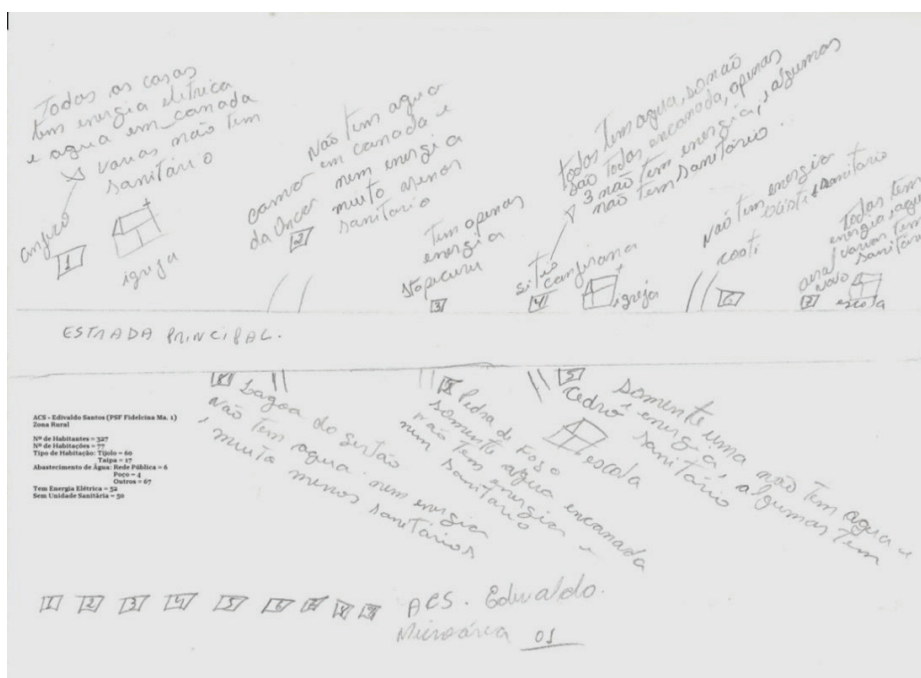 Todas as casas
tem energia eletrica
e agua em canada
varias não tem
sanitário
angico
1
igreja
não tem agua
em canada e
nem energia
muito menos
sanitario
da Onça
2
Tem apenas
energia
3
todas tem agua, so não
são todas encanada, apenas
3 não tem energia, algumas
não tem sanitário
sitio
4
igreja
Não tem energia
6
todas tem
energia
varias tem
novo
7
escola
ESTRADA PRINCIPAL.
Lagoa do sertão
Não tem agua nem energia
muito menos sanitários
Pedra de Fogo
somente agua encanada
não tem energia e
nem sanitario
5
Cedro
escola
somente uma não tem agua e
energia, algumas tem
sanitário
ACS - Edivaldo Santos (PSF Fidelcina Ma. 1)
Zona Rural
Nº de Habitantes = 327
Nº de Habitações = 77
Tipo de Habitação: Tijolo = 60
Taipa = 17
Abastecimento de Água: Rede Pública = 6
Poço = 4
Outros = 67
Tem Energia Elétrica = 52
Sem Unidade Sanitária = 50
1 2 3 4 5 6 7 8 9 ACS. Edivaldo.
Microárea 01